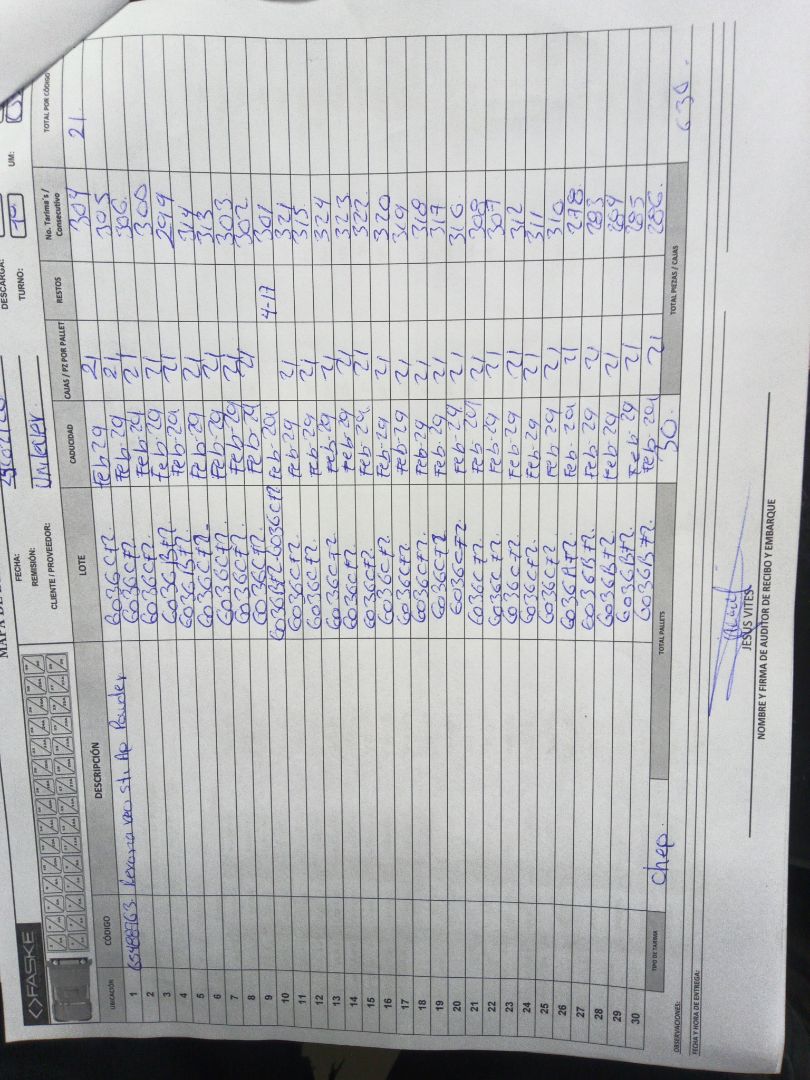 MAPA DE
FECHA:
DESCARGA:
REMISIÓN:
TURNO: 1o.
UM:
CLIENTE / PROVEEDOR: Unilever.
FASKE
UBICACIÓN CÓDIGO DESCRIPCIÓN LOTE CADUCIDAD CAJAS / PZ POR PALLET RESTOS No. Tarima's / Consecutivo TOTAL POR CÓDIGO
1 Rexona Sti Ap Powder 6036C72. Feb 29 21 304 21.
2 6036C72. Feb-29 21. 305
3 6036C72. Feb-29 21 306.
4 6036B72 Feb-29 21 300
5 6036B72. Feb-29 21 299
6 6036C72. Feb-29 21 314
7 6036C72. Feb-29 21 313
8 6036C72. Feb-29 21 303
9 6036C72. Feb-29 21 302.
10 6036B72 6036C72 Feb-29 4-17 301
11 6036C72. Feb-29 21 321
12 6036C72. Feb-29 21 315
13 6036C72. Feb-29 21 324
14 6036C72. Feb-29 21 323
15 6036C72. Feb-29 21 322.
16 6036C72. Feb-29 21 320
17 6036C72 Feb-29 21 319
18 6036C72. Feb-29 21 318
19 6036C72 Feb-29 21 317
20 6036C72 Feb-29 21 316.
21 6036C72. Feb-29 21 308
22 6036C72. Feb-29 21 307
23 6036C72 Feb-29 21 312
24 6036C72. Feb-29 21 311
25 6036C72 Feb-29 21 310
26 6036A72. Feb-29 21 278
27 6036B72. Feb-29 21 283
28 6036B72 Feb-29 21 284
29 6036B72. Feb-29 21 285
30 6036B72. Feb-29 21 286.
TIPO DE TARIMA Chep. TOTAL PALLETS 30. TOTAL PIEZAS / CAJAS 630.
OBSERVACIONES:
FECHA Y HORA DE ENTREGA:
JESUS VITES
NOMBRE Y FIRMA DE AUDITOR DE RECIBO Y EMBARQUE